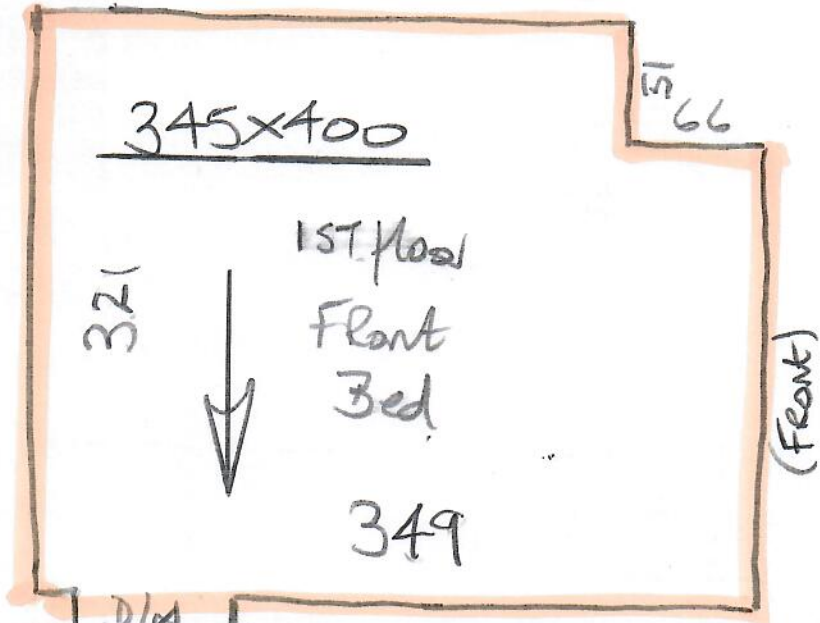 345x400
51
66
1ST floor
Front
Bed
321
(FRONT)
349